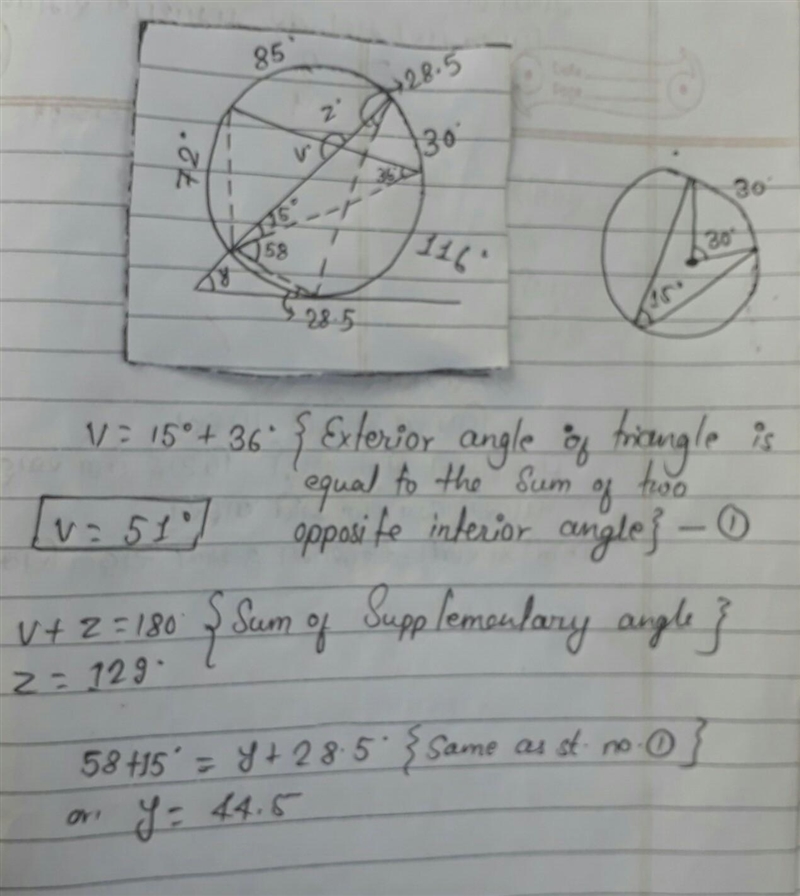 85°
28.5
z°
30°
v
72°
36°
15°
58
116°
y
28.5
30°
30°
15°
V = 15° + 36° { Exterior angle of triangle is
equal to the Sum of two
V = 51°
opposite interior angle} — ①
V + Z = 180 { Sum of Supplementary angle }
Z = 129°
58+15° = y + 28.5° { Same as st. no. ① }
or, y = 44.5